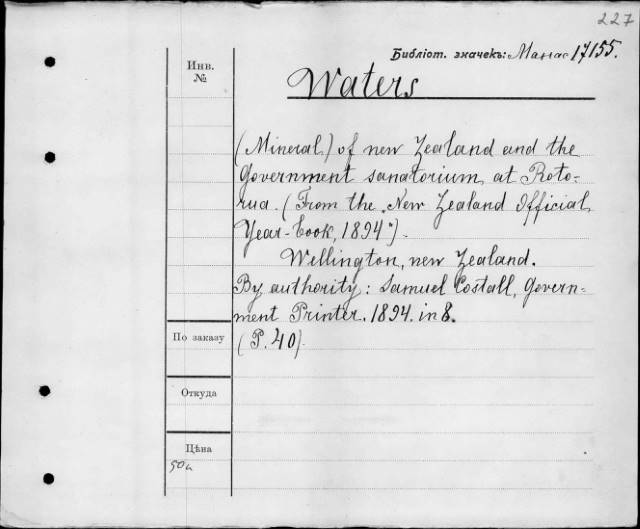 227
Библіот. значекъ: Манас 17155.
Инв.
№
Waters
(Mineral) of new Zealand and the
Government sanatorium at Roto-
rua. (From the "New Zealand Official
Year-book, 1894").
Wellington, new Zealand.
By authority: Samuel Costall, Govern-
ment Printer. 1894. in 8.
По заказу
(P. 40).
Откуда
Цѣна